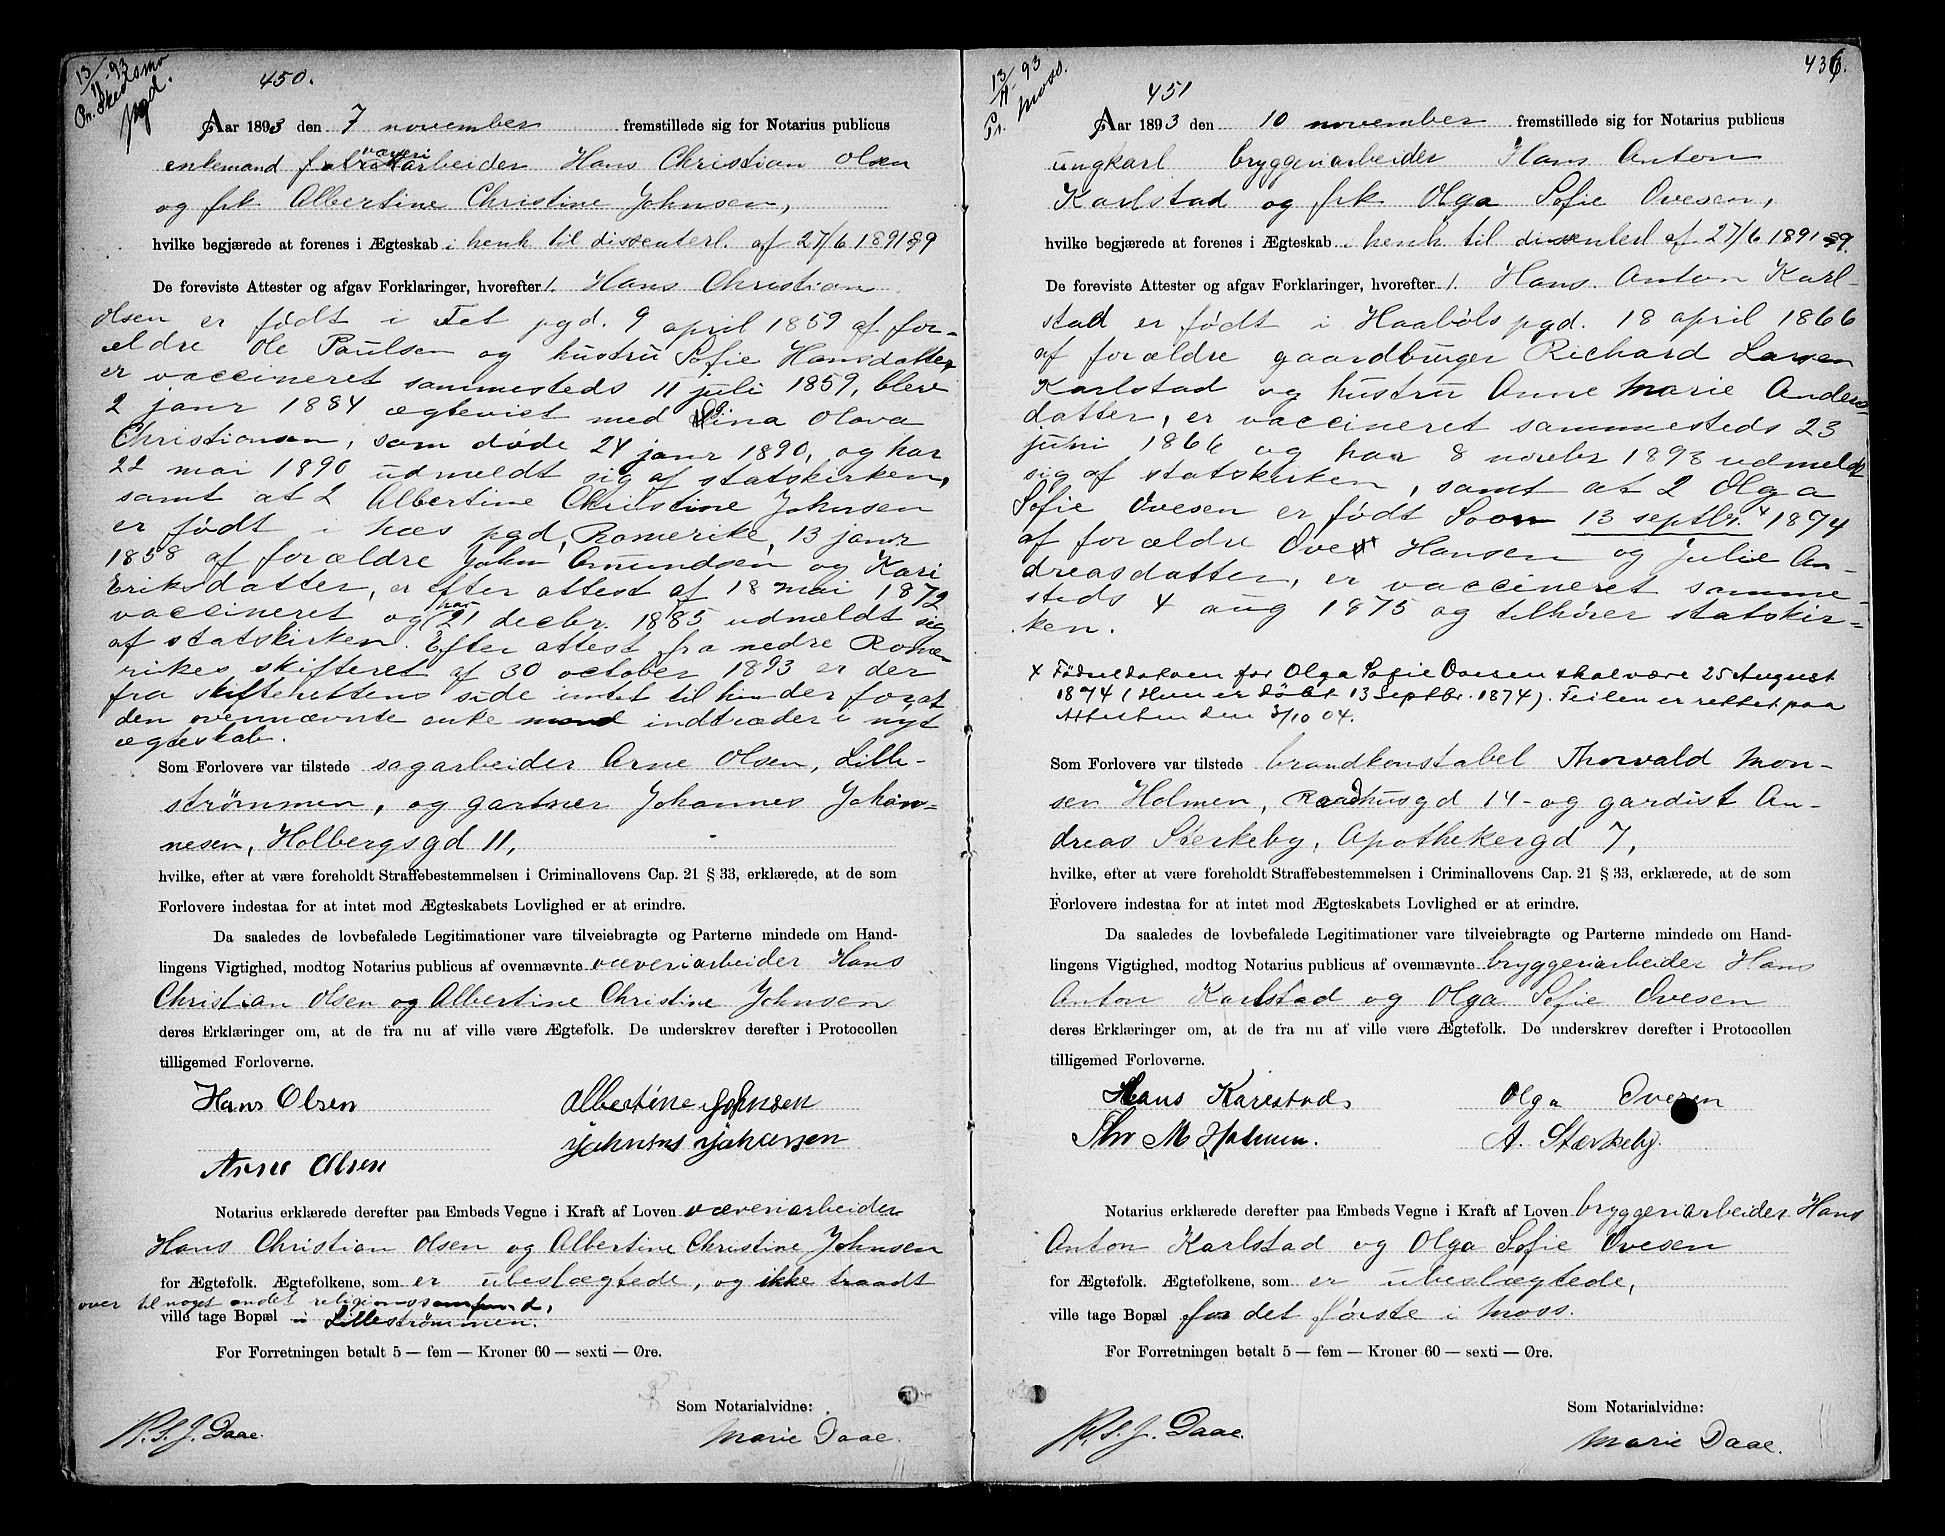 13/11-93
Pr. Skedsmo
pgd.
450.
Aar 1893 den 7 november fremstillede sig for Notarius publicus
enkemand væveriarbeider Hans Christian Olsen
og frk Albertine Christine Johnsen,
hvilke begjærede at forenes i Ægteskab i henh. til dissenterl. af 27/6 1891 § 9
De foreviste Attester og afgav Forklaringer, hvorefter 1. Hans Christian
Olsen er født i Fet pgd. 9 april 1859 af for-
ældre Ole Paulsen og hustru Sofie Hansdatter
er vaccineret sammesteds 11 juli 1859, blev
2 janr 1884 ægteviet med Lina Olava
Christiansen, som døde 24 janr 1890, og har
22 mai 1890 udmeldt sig af statskirken,
samt at 2 Albertine Christine Johnsen
er født i Næs pgd, Romerike, 13 janr
1858 af forældre John Amundsen og Kari
Eriksdatter, er efter attest af 18 mai 1872
vaccineret og har 21 decbr. 1885 udmeldt sig
af statskirken. Efter attest fra nedre Rome-
rikes skifteret af 30 october 1893 er der
fra skifterettens side intet til hinder for at
den ovennævnte enkemand indtræder i nyt
ægteskab.
Som Forlovere var tilstede sagarbeider Arne Olsen, Lille-
strømmen, og gartner Johannes Johan-
nesen, Holbergsgd 11,
hvilke, efter at være foreholdt Straffebestemmelsen i Criminallovens Cap. 21 § 33, erklærede, at de som
Forlovere indestaa for at intet mod Ægteskabets Lovlighed er at erindre.
Da saaledes de lovbefalede Legitimationer vare tilveiebragte og Parterne mindede om Hand-
lingens Vigtighed, modtog Notarius publicus af ovennævnte væveriarbeider Hans
Christian Olsen og Albertine Christine Johnsen
deres Erklæringer om, at de fra nu af ville være Ægtefolk. De underskrev derefter i Protocollen
tilligemed Forloverne.
Hans Olsen Albertine Johnsen
Arne Olsen
Notarius erklærede derefter paa Embeds Vegne i Kraft af Loven væveriarbeider
Hans Christian Olsen og Albertine Christine Johnsen
for Ægtefolk. Ægtefolkene, som er ubeslægtede, og ikke traadt
over til noget andet religionssamfund,
ville tage Bopæl i Lillestrømmen.
For Forretningen betalt 5 — fem — Kroner 60 — sexti — Øre.
Som Notarialvidne:
Daae. Marie Daae.
13/11 93
Pr. Moss.
436.
451
Aar 1893 den 10 november fremstillede sig for Notarius publicus
ungkarl bryggeriarbeider Hans Anton
Karlstad og frk Olga Sofie Ovesen,
hvilke begjærede at forenes i Ægteskab i henh. til dissenterl af 27/6 1891 § 9.
De foreviste Attester og afgav Forklaringer, hvorefter 1. Hans Anton Karl-
stad er født i Haabøls pgd. 18 april 1866
af forældre gaardbruger Richard Larsen
Karlstad og hustru Anne Marie Anders-
datter, er vaccineret sammesteds 23
juni 1866 og har 8 novbr 1893 udmeldt
sig af statskirken, samt at 2 Olga
Sofie Ovesen er født Soon 13 septbr. x 1874
af forældre Ove Hansen og Julie An-
dreasdatter, er vaccineret samme-
steds 4 aug 1875 og tilhører statskir-
ken.
x Fødseldatoen for Olga Sofie Ovesen skal være 25 August
1874 (Hun er døbt 13 Septbr. 1874). Feilen er rettet paa
Attesten den 3/10 04.
Som Forlovere var tilstede brandkonstabel Thorvald Mon-
sen Holmen, Raadhusgd 14 - og gardist An-
dreas Stærkeby, Apothekergd 7,
hvilke, efter at være foreholdt Straffebestemmelsen i Criminallovens Cap. 21 § 33, erklærede, at de som
Forlovere indestaa for at intet mod Ægteskabets Lovlighed er at erindre.
Da saaledes de lovbefalede Legitimationer vare tilveiebragte og Parterne mindede om Hand-
lingens Vigtighed, modtog Notarius publicus af ovennævnte bryggeriarbeider Hans
Anton Karlstad og Olga Sofie Ovesen
deres Erklæringer om, at de fra nu af ville være Ægtefolk. De underskrev derefter i Protocollen
tilligemed Forloverne.
Hans Karlstad Olga Ovesen
Thv M Holmen. A. Stærkeby.
Notarius erklærede derefter paa Embeds Vegne i Kraft af Loven bryggeriarbeider Hans
Anton Karlstad og Olga Sofie Ovesen
for Ægtefolk. Ægtefolkene, som er ubeslægtede,
ville tage Bopæl for det første i Moss.
For Forretningen betalt 5 — fem — Kroner 60 — sexti — Øre.
Som Notarialvidne:
Daae. Marie Daae.